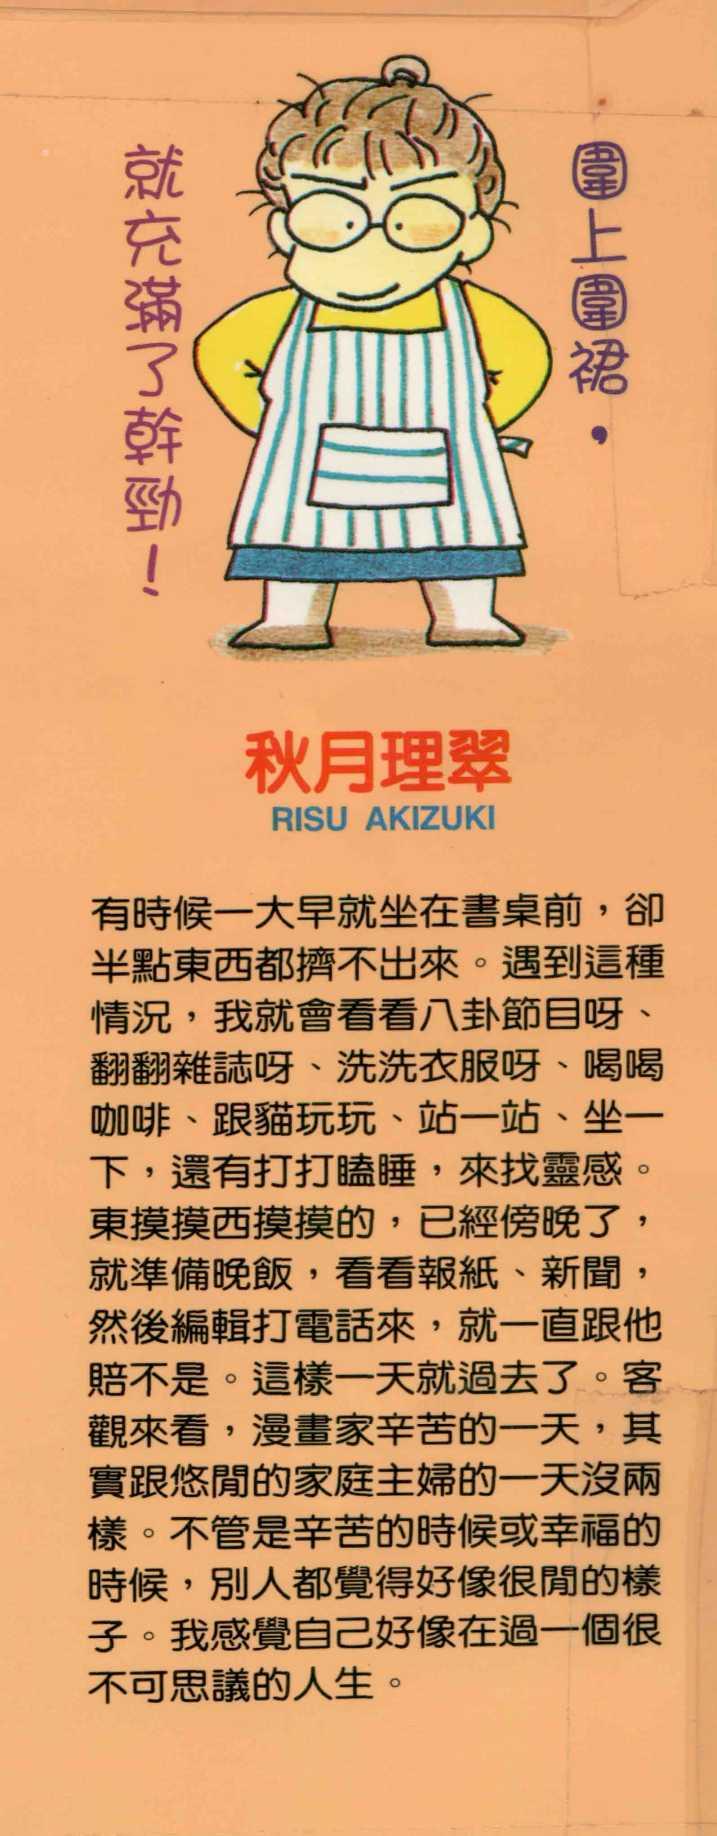 圍上圍裙，
就充滿了幹勁！
秋月理翠
RISU AKIZUKI
有時候一大早就坐在書桌前，卻
半點東西都擠不出來。遇到這種
情況，我就會看看八卦節目呀、
翻翻雜誌呀、洗洗衣服呀、喝喝
咖啡、跟貓玩玩、站一站、坐一
下，還有打打瞌睡，來找靈感。
東摸摸西摸摸的，已經傍晚了，
就準備晚飯，看看報紙、新聞，
然後編輯打電話來，就一直跟他
賠不是。這樣一天就過去了。客
觀來看，漫畫家辛苦的一天，其
實跟悠閒的家庭主婦的一天沒兩
樣。不管是辛苦的時候或幸福的
時候，別人都覺得好像很閒的樣
子。我感覺自己好像在過一個很
不可思議的人生。